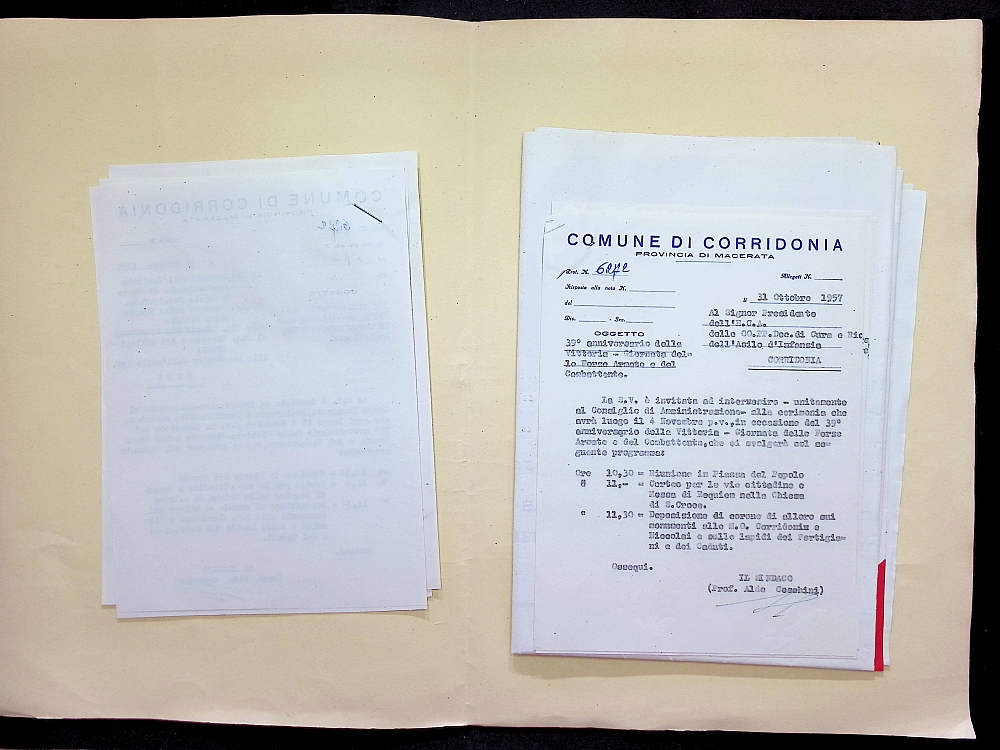 COMUNE DI CORRIDONIA
PROVINCIA DI MACERATA
Prot. N. 6272
Allegati N.
Risposta alla nota N.
del
Div. - Sez.
31 Ottobre 1957
Al Signor Presidente
dell'E.C.A.
delle OO.PP.Dec.di Cura e Ric
dell'Asilo d'Infanzia
CORRIDONIA
OGGETTO
39° anniversario della
Vittoria - Giornata del-
le Forze Armate e del
Combattente.
La S.V. è invitata ad intervenire - unitamente
al Consiglio di Amministrazione- alla cerimonia che
avrà luogo il 4 Novembre p.v.,in occasione del 39°
anniversario della Vittoria - Giornata delle Forze
Armate e del Combattente,che si svolgerà col se-
guente programma:
Ore 10,30 = Riunione in Piazza del Popolo
" 11,-- = Corteo per le vie cittadine e
Messa di Requiem nella Chiesa
di S.Croce.
" 11,30 = Deposizione di corone di alloro sui
monumenti alle M.O. Corridoni e
Niccolai e sulle lapidi dei Partigia-
ni e dei Caduti.
Ossequi.
IL SINDACO
(Prof. Aldo Ceschini)
COMUNE DI CORRIDONIA
PROVINCIA DI MACERATA
6272